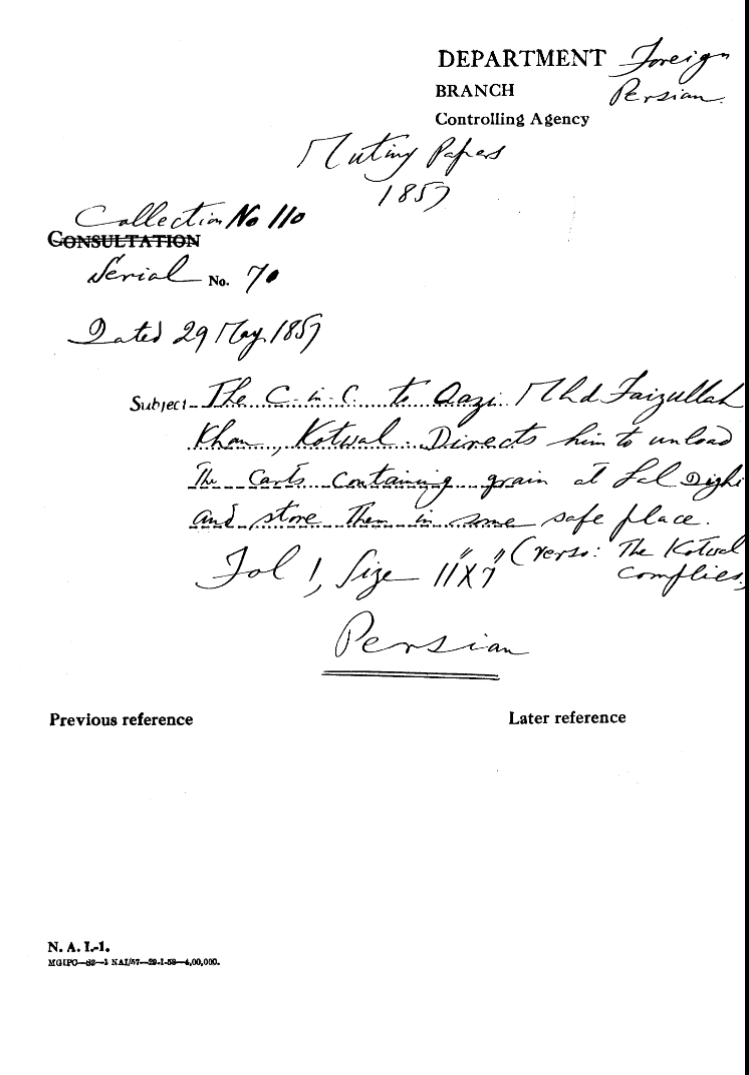 DEPARTMENT Foreign
BRANCH Persian.
Controlling Agency
Mutiny Papers
1857
Collection No 110
CONSULTATION
Serial No. 70
Dated 29 May 1857
Subject - The C-in-C. to Qazi Mhd Faizullah
Khan, Kotwal. Directs him to unload
The Carts containing grain at Lal Dighi
and store them in some safe place.
Fol 1, Size 11"X7" (verso: The Kotwal
complies,
Persian
Previous reference Later reference
N. A. I.-1.
MGIPC—S2—1 NAI/57—29-1-58—4,00,000.